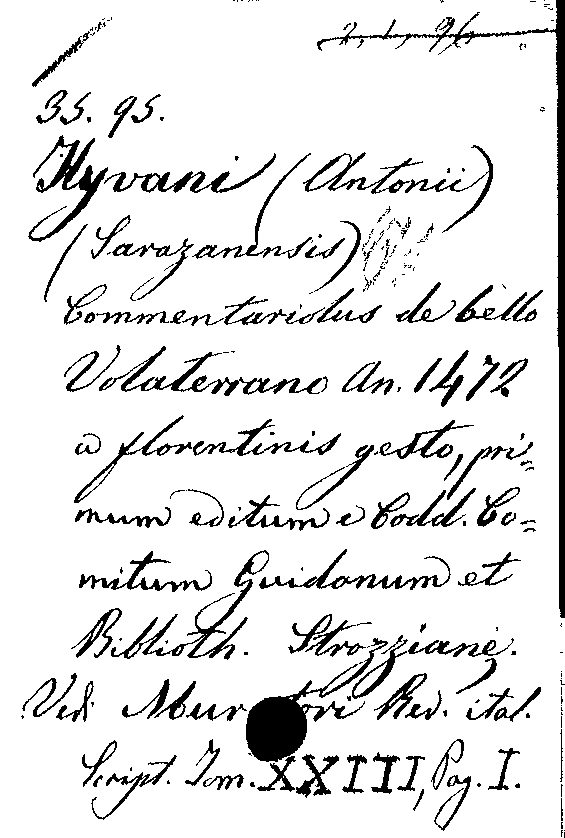 2, 1, 96
35. 95.
Hyvani (Antonii)
(Sarazanensis)
Commentariolus de bello
Volaterrano An. 1472
a florentinis gesto, pri=
mum editum e Codd. Co=
mitum Guidonum et
Biblioth. Strozziane.
Vedi Muratori Rer. ital.
Script. Tom. XXIII, Pag. I.